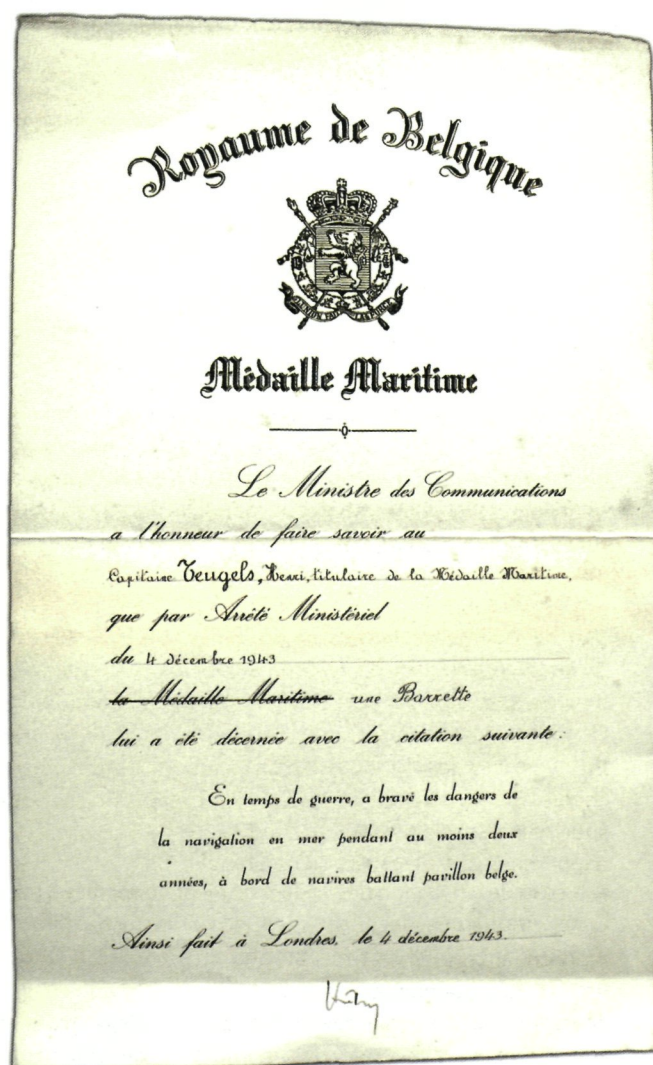 Royaume de Belgique
L'UNION FAIT LA FORCE
Médaille Maritime
Le Ministre des Communications
a l'honneur de faire savoir au
Capitaine Teugels, Henri, titulaire de la Médaille Maritime,
que par Arrêté Ministériel
du 4 décembre 1943
la Médaille Maritime une Barrette
lui a été décernée avec la citation suivante :
En temps de guerre, a bravé les dangers de
la navigation en mer pendant au moins deux
années, à bord de navires battant pavillon belge.
Ainsi fait à Londres, le 4 décembre 1943.